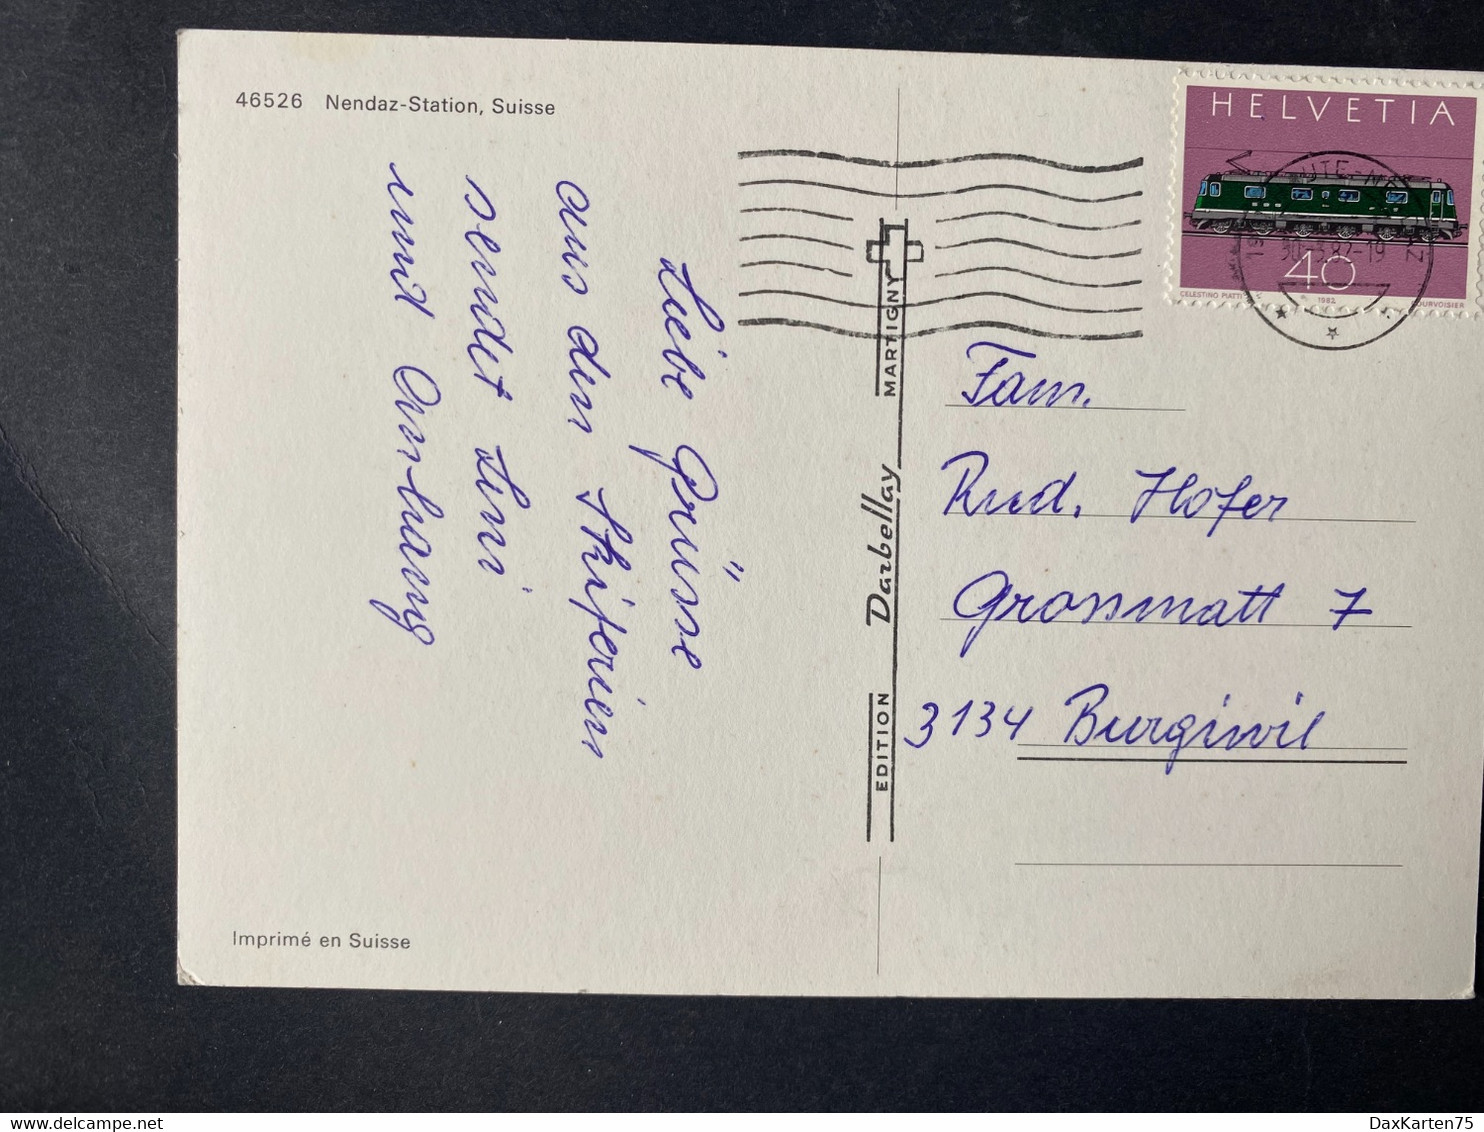 46526 Nendaz-Station, Suisse
Liebe Grüsse
aus den Skiferien
sendet Leni
und Anhang
Imprimé en Suisse
EDITION Darbellay MARTIGNY
HELVETIA
40
CELESTINO PIATTI 1982 COURVOISIER
30.-3.82-19
Fam.
Rud. Hofer
Grossmatt 7
3134 Burgiwil
DaxKarten75